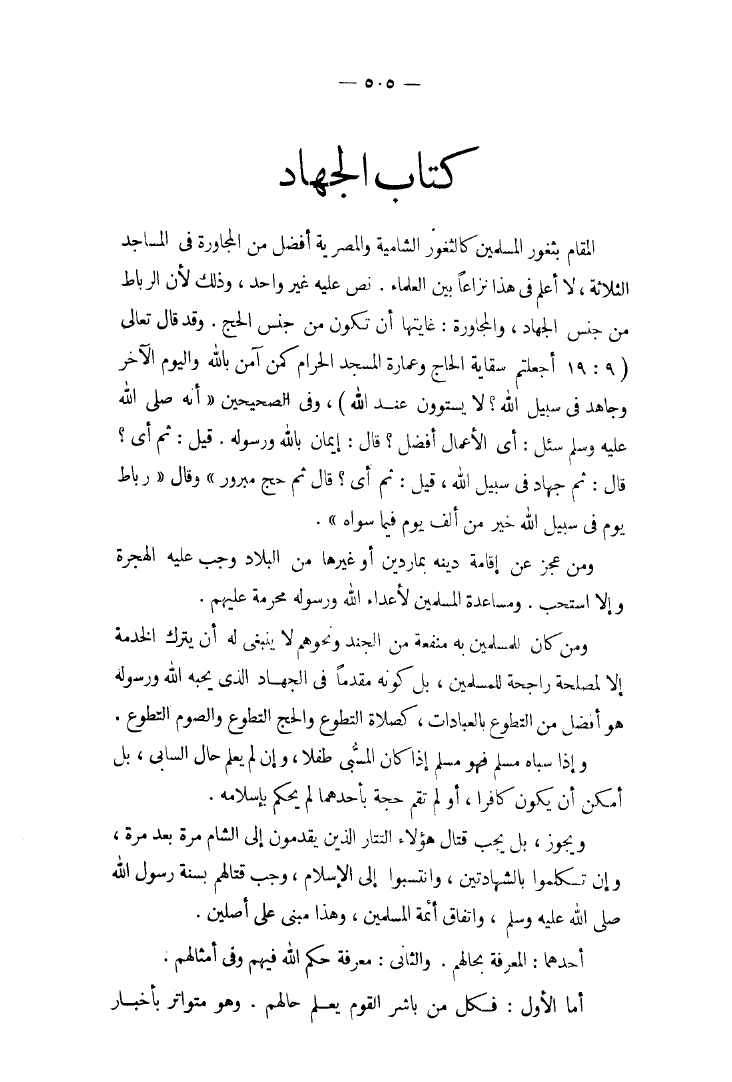 — ٥٠٥ —
كتاب الجهاد
المقام بثغور المسلمين كالثغور الشامية والمصرية أفضل من المجاورة فى المساجد
الثلاثة ، لا أعلم فى هذا نزاعاً بين العلماء . نص عليه غير واحد ، وذلك لأن الرباط
من جنس الجهاد ، والمجاورة : غايتها أن تكون من جنس الحج . وقد قال تعالى
( ٩ : ١٩ أجعلتم سقاية الحاج وعمارة المسجد الحرام كمن آمن بالله واليوم الآخر
وجاهد فى سبيل الله ؟ لا يستوون عند الله ) ، وفى الصحيحين « أنه صلى الله
عليه وسلم سئل : أى الأعمال أفضل ؟ قال : إيمان بالله ورسوله . قيل : ثم أى ؟
قال : ثم جهاد فى سبيل الله ، قيل : ثم أى ؟ قال ثم حج مبرور » وقال « رباط
يوم فى سبيل الله خير من ألف يوم فيما سواه » .
ومن عجز عن إقامة دينه بماردين أو غيرها من البلاد وجب عليه الهجرة
وإلا استحب . ومساعدة المسلمين لأعداء الله ورسوله محرمة عليهم .
ومن كان للمسلمين به منفعة من الجند ونحوهم لا ينبغى له أن يترك الخدمة
إلا لمصلحة راجحة للمسلمين ، بل كونه مقدماً فى الجهاد الذى يحبه الله ورسوله
هو أفضل من التطوع بالعبادات ، كصلاة التطوع والحج التطوع والصوم التطوع .
وإذا سباه مسلم فهو مسلم إذا كان المسْبَّى طفلا ، وإن لم يعلم حال السابى ، بل
أمكن أن يكون كافرا ، أو لم تقم حجة بأحدهما لم يحكم بإسلامه .
ويجوز ، بل يجب قتال هؤلاء التتار الذين يقدمون إلى الشام مرة بعد مرة ،
وإن تكلموا بالشهادتين ، وانتسبوا إلى الإسلام ، وجب قتالهم بسنة رسول الله
صلى الله عليه وسلم ، واتفاق أئمة المسلمين ، وهذا مبنى على أصلين .
أحدهما : المعرفة بحالهم . والثانى : معرفة حكم الله فيهم وفى أمثالهم .
أما الأول : فكل من باشر القوم يعلم حالهم . وهو متواتر بأخبار